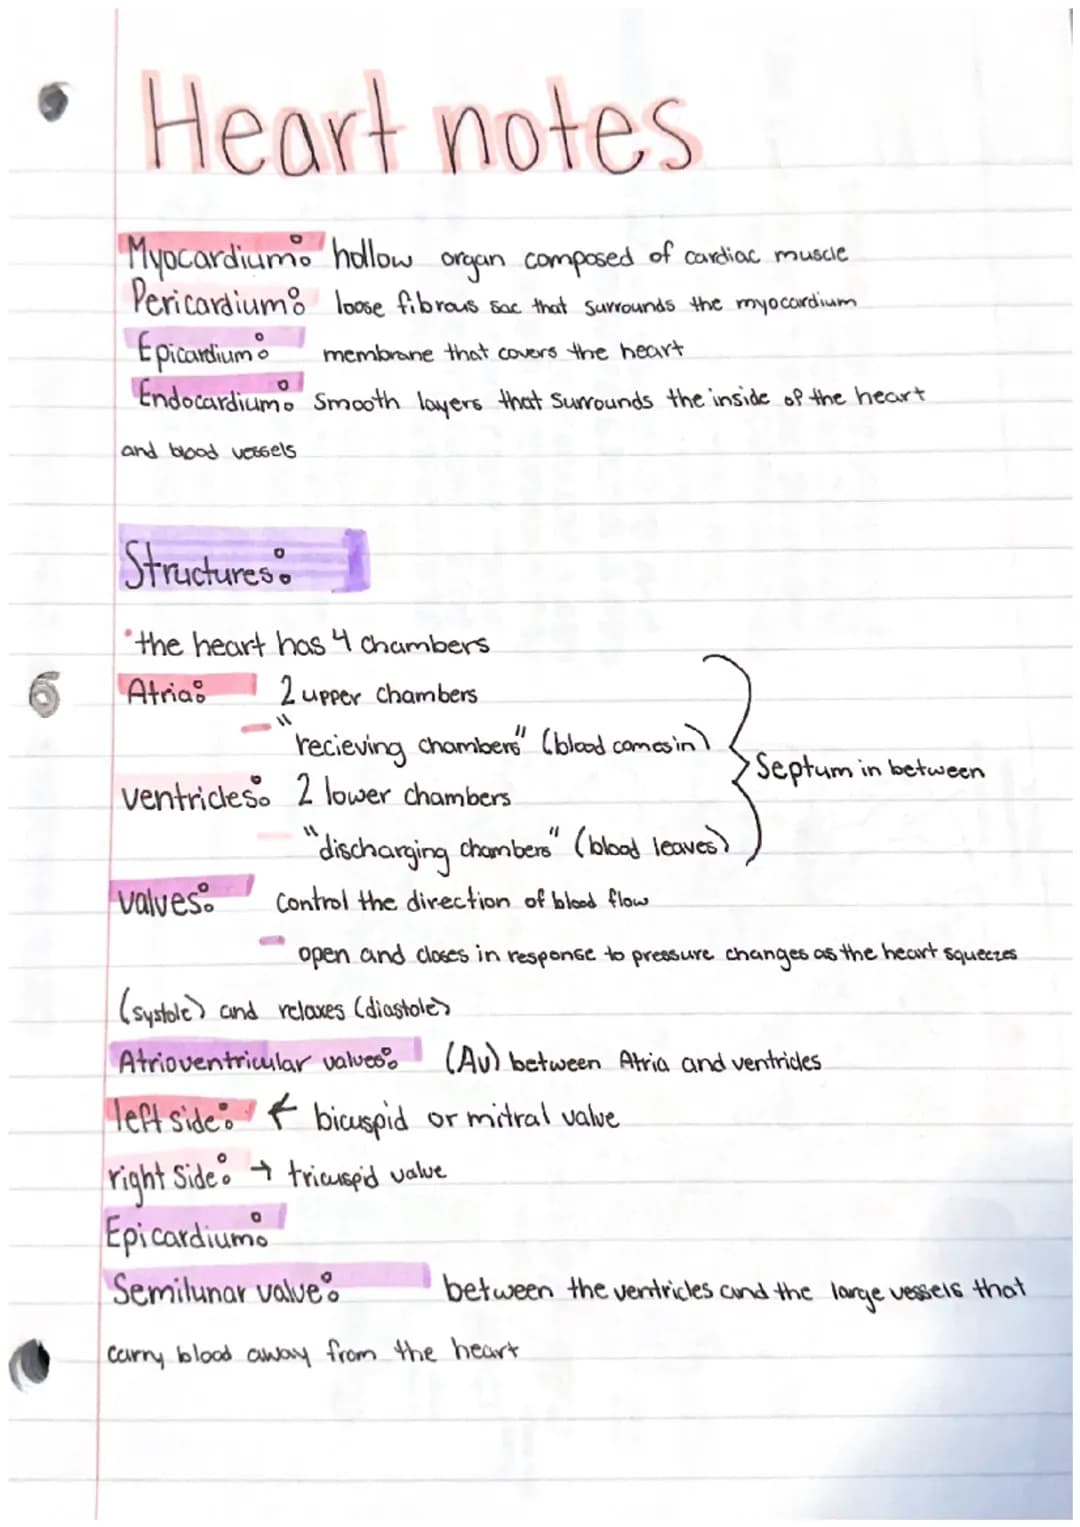 Heart notes
Myocardium: hollow organ composed of cardiac muscle
Pericardium: loose fibrous sac that surrounds the myocardium
Epicardium: membrane that covers the heart
Endocardium: Smooth layers that surrounds the inside of the heart
and blood vessels
Structures:
•the heart has 4 chambers
Atria: 2 upper chambers
- "recieving chambers" (blood comes in)
Septum in between
ventricles: 2 lower chambers
- "discharging chambers" (blood leaves)
valves: control the direction of blood flow
- open and closes in response to pressure changes as the heart squeezes
(systole) and relaxes (diastole)
Atrioventricular valves: (AV) between Atria and ventricles
left side: ← bicuspid or mitral valve
right side: → tricuspid valve
Epicardium:
Semilunar valve: between the ventricles and the large vessels that
carry blood away from the heart